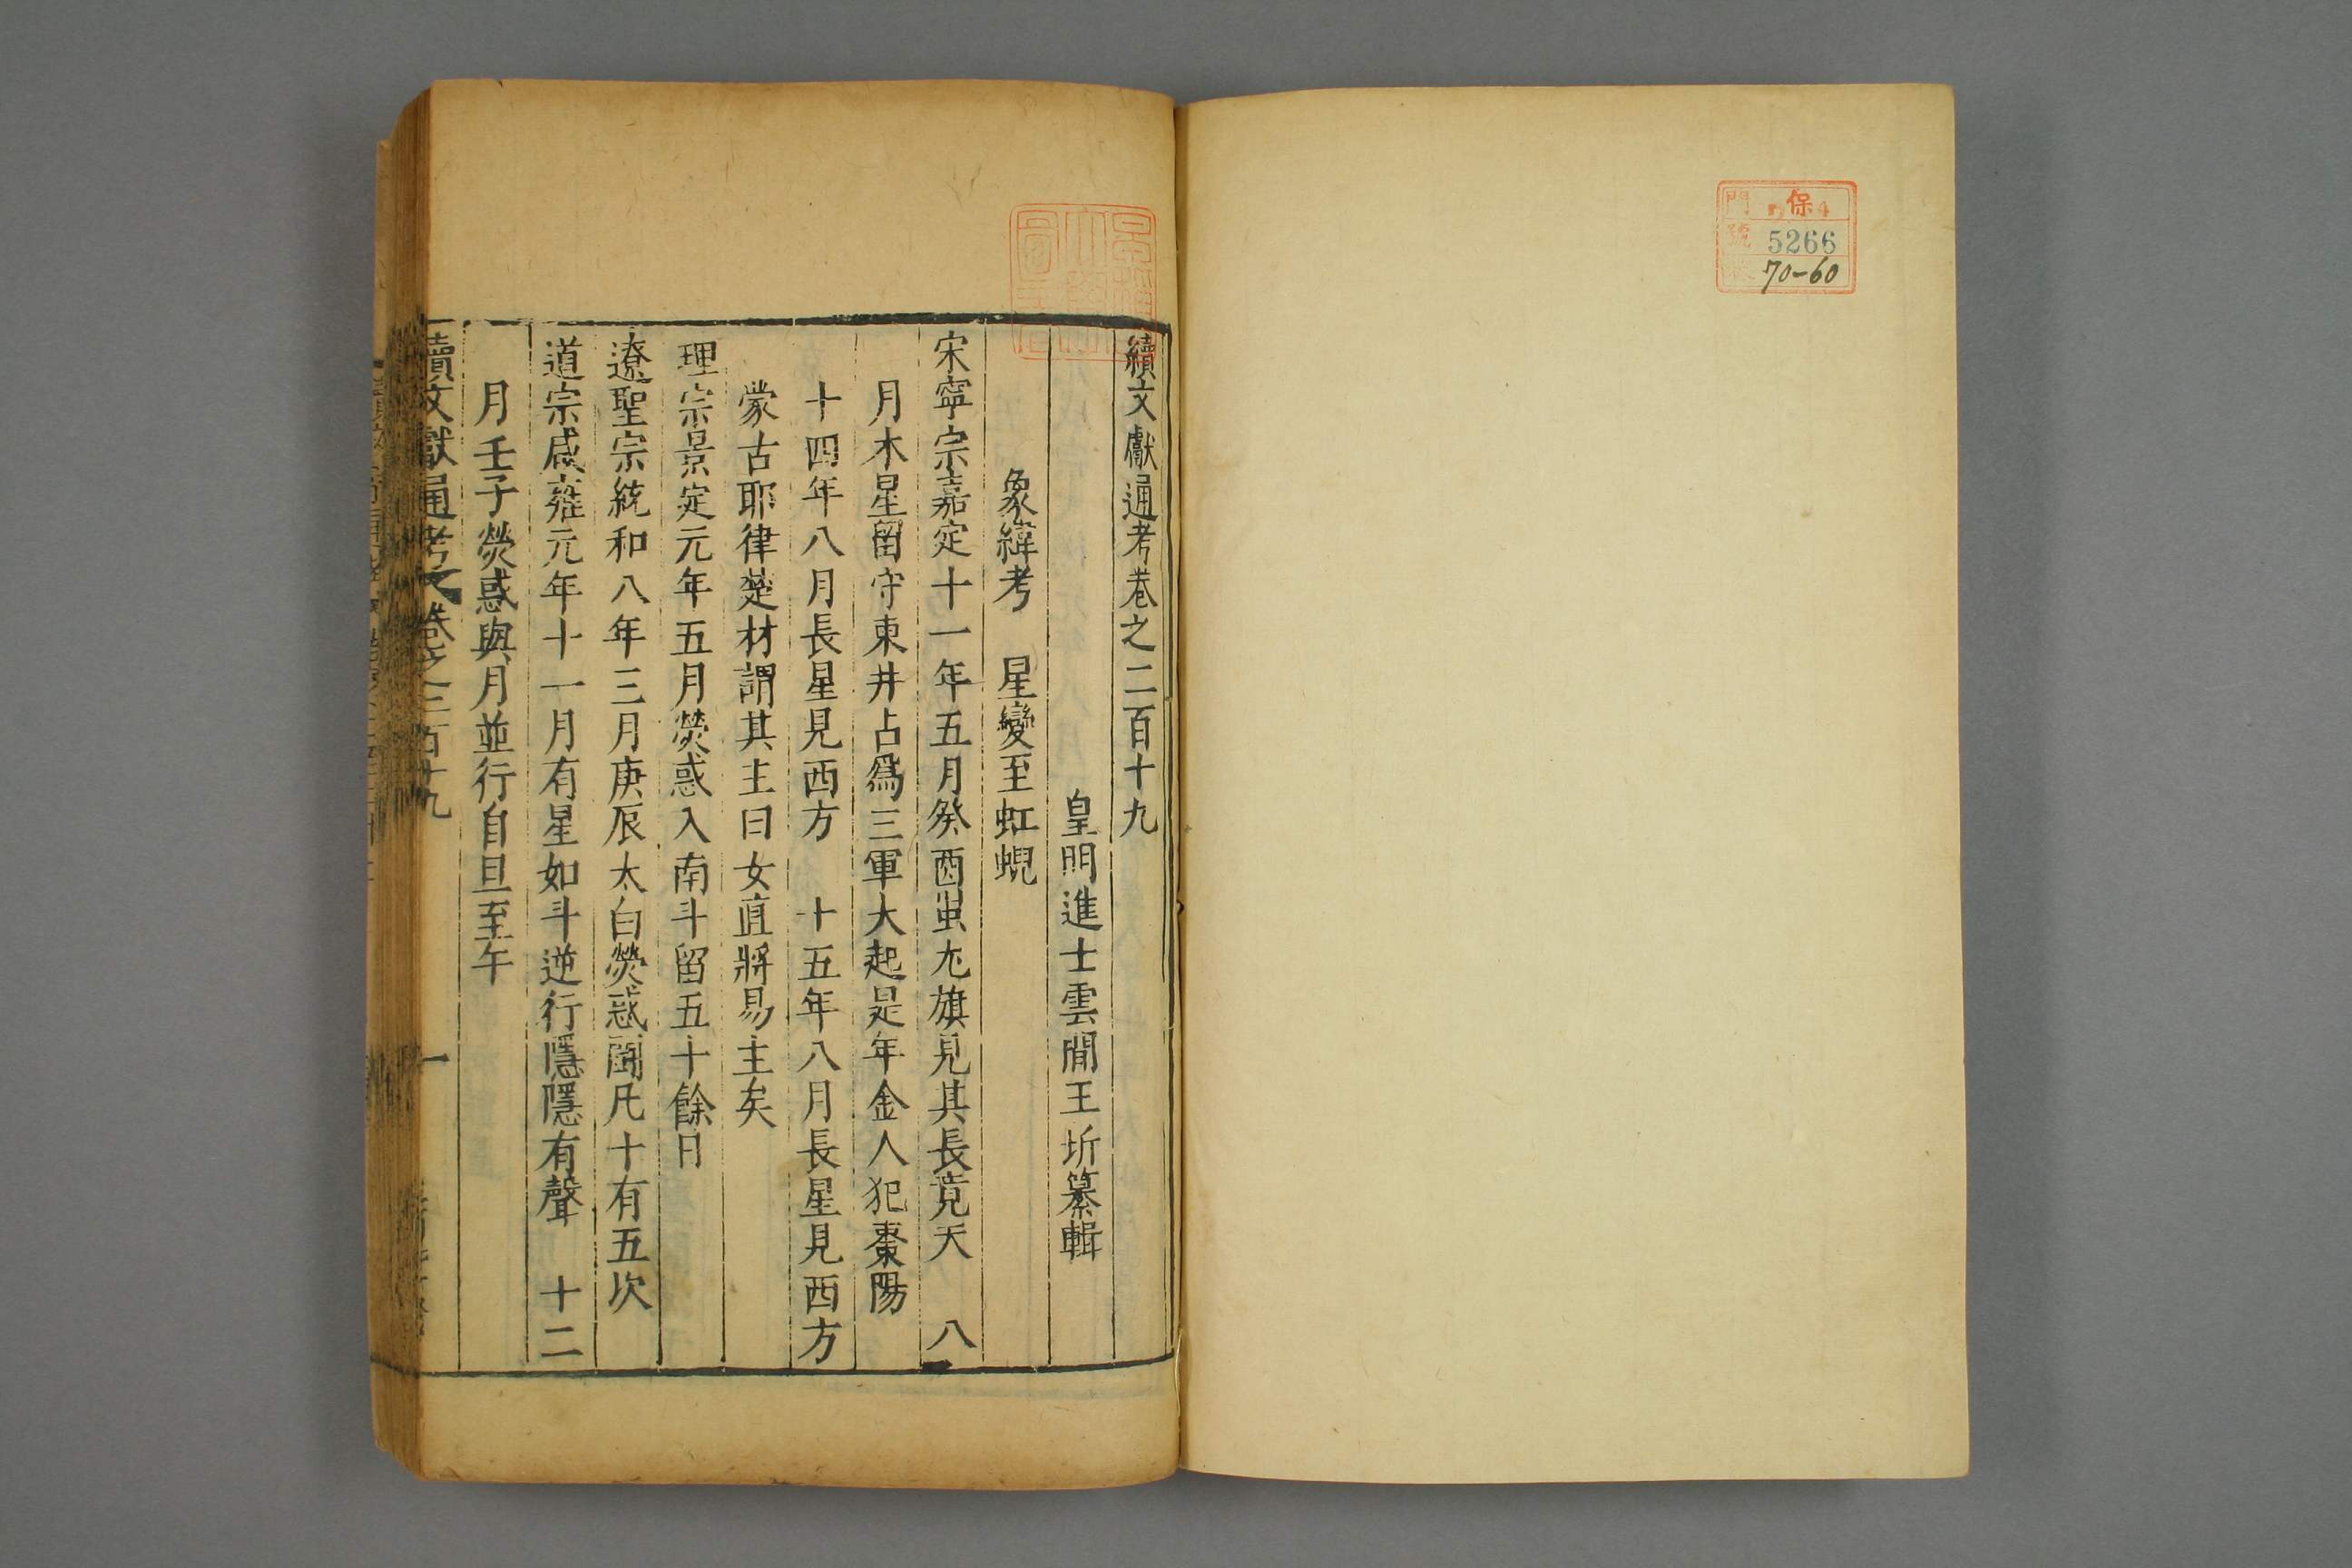 門 保 4
號 5266
70-60
續文獻通考卷之二百十九
皇明進士雲間王圻纂輯
象緯考 星變至虹蜺
宋寧宗嘉定十一年五月癸酉蚩尤旗見其長竟天 八
月木星留守東井占爲三軍大起是年金人犯棗陽
十四年八月長星見西方 十五年八月長星見西方
蒙古耶律楚材謂其主曰女直將易主矣
理宗景定元年五月熒惑入南斗留五十餘日
遼聖宗統和八年三月庚辰太白熒惑鬬凡十有五次
道宗咸雍元年十一月有星如斗逆行隱隱有聲 十二
月壬子熒惑與月並行自旦至午
續文獻通考 卷之二百十九 一